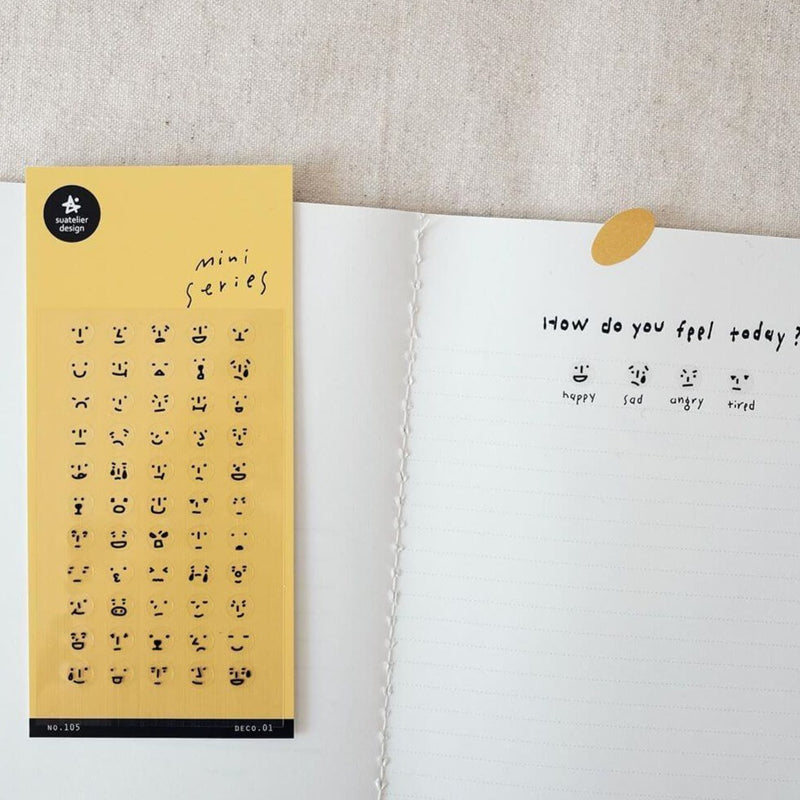 suatelier
design
mini
series
NO.105
DECO.01
How do you feel today?
happy
sad
angry
tired